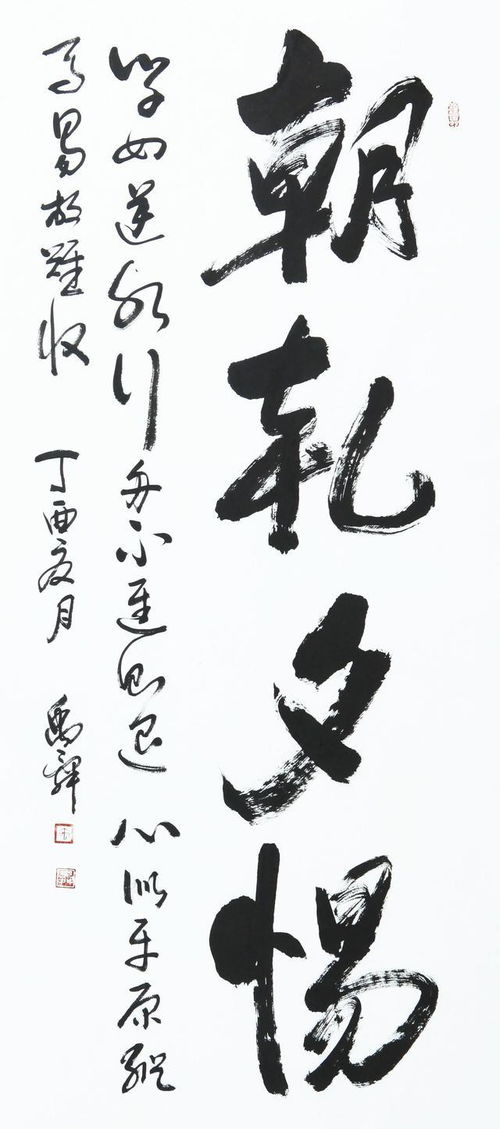 朝乹夕惕
学如逆水行舟不進则退 心似平原縱
马易放難收 丁酉夏月